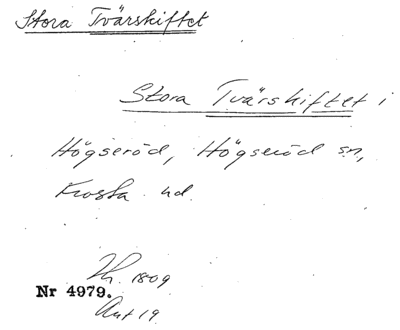 Stora Tvärskiftet
Stora Tvärskiftet i
Högseröd, Högseröd sn,
Frosta hd.
Lh. 1809
Nr 4979.
Akt 19